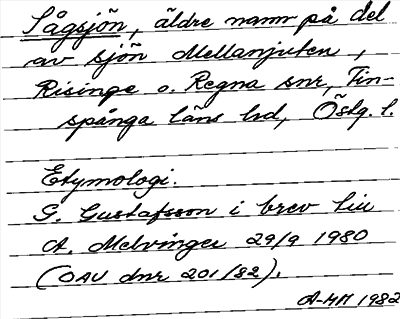 Sågsjön, äldre namn på del
av sjön Mellanjuten,
Risinge o. Regna snr, Fin-
spånga läns hd, Östg. l.
Etymologi.
G. Gustafsson i brev till
A. Melvinger 29/9 1980
(OAU dnr 201/82).
A-HM 1982